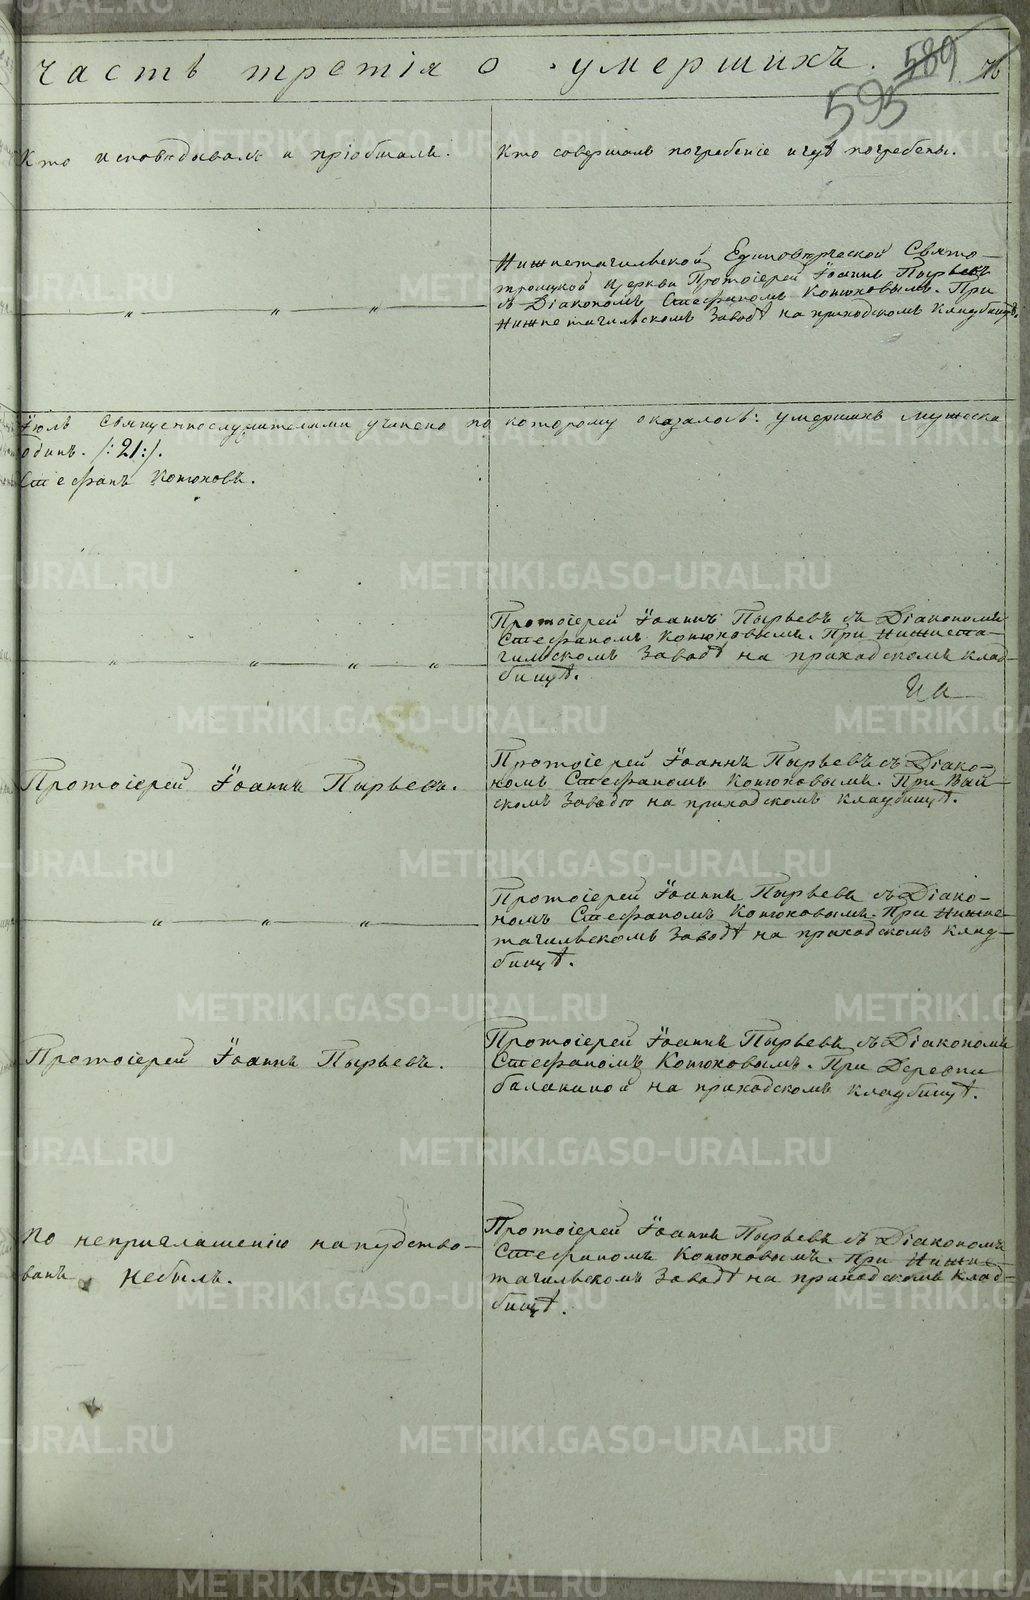 часть третiя о умершихъ.
589
76
595
Кто исповѣдывалъ и прiобщалъ.
Кто совершалъ погребенiе и гдѣ погребены.
Нижнетагильской Единовѣрческой Свято-
троицкой Церкви Протоiерей Iоаннъ Пырьевъ
съ Дiакономъ Стефаномъ Конюховымъ. При
Нижнетагильскомъ Заводѣ на приходскомъ кладбищѣ.
„ „ „
Iюль Священнослужителями учинено по которому оказалось: умершихъ мужеска
одинъ. /:21:/.
Стефанъ Конюховъ.
Протоiерей Iоаннъ Пырьевъ съ Дiакономъ
Стефаномъ Конюховымъ. При Нижнета-
гильскомъ Заводѣ на приходскомъ клад-
бищѣ.
„ „ „ „
Протоiерей Iоаннъ Пырьевъ.
Протоiерей Iоаннъ Пырьевъ съ Дiако-
номъ Стефаномъ Конюховымъ. При Вый-
скомъ Заводѣ на приходскомъ кладбищѣ.
„ „ „
Протоiерей Iоаннъ Пырьевъ съ Дiако-
номъ Стефаномъ Конюховымъ. При Нижне-
тагильскомъ Заводѣ на приходскомъ клад-
бищѣ.
Протоiерей Iоаннъ Пырьевъ.
Протоiерей Iоаннъ Пырьевъ съ Дiакономъ
Стефаномъ Конюховымъ. При Деревни
балакиной на приходскомъ кладбищѣ.
По неприглашенiю напутство-
ванъ небылъ.
Протоiерей Iоаннъ Пырьевъ съ Дiакономъ
Стефаномъ Конюховымъ. При Нижне-
тагильскомъ Заводѣ на приходскомъ клад-
бищѣ.
METRIKI.GASO-URAL.RU